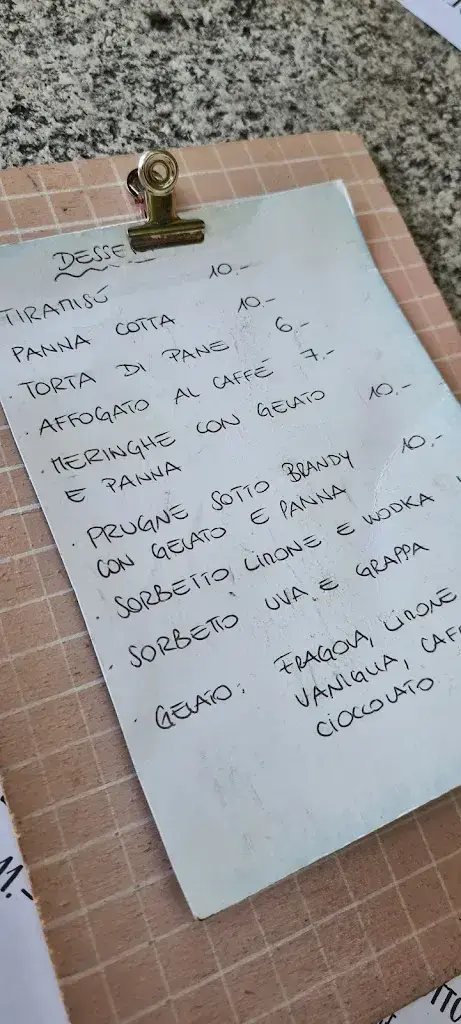 DESSE
TIRAMISÚ 10.-
PANNA COTTA 10.-
· TORTA DI PANE 6.-
· AFFOGATO AL CAFFÉ 7.-
· MERINGHE CON GELATO 10.-
E PANNA
· PRUGNE SOTTO BRANDY 10.-
CON GELATO E PANNA
· SORBETTO LIMONE E WODKA
· SORBETTO UVA E GRAPPA
· GELATO: FRAGOLA, LIMONE
VANIGLIA, CAF
CIOCCOLATO
11.-